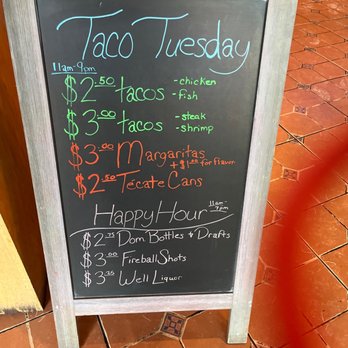 Taco Tuesday
11am-9pm
$2.50 tacos - chicken
- fish
$3.00 tacos - steak
- shrimp
$3.00 Margaritas
+$1.00 for flavor
$2.50 Tecate Cans
Happy Hour 11am-7pm
$2.75 Dom Bottles & Drafts
$3.00 Fireball Shots
$3.25 Well Liquor